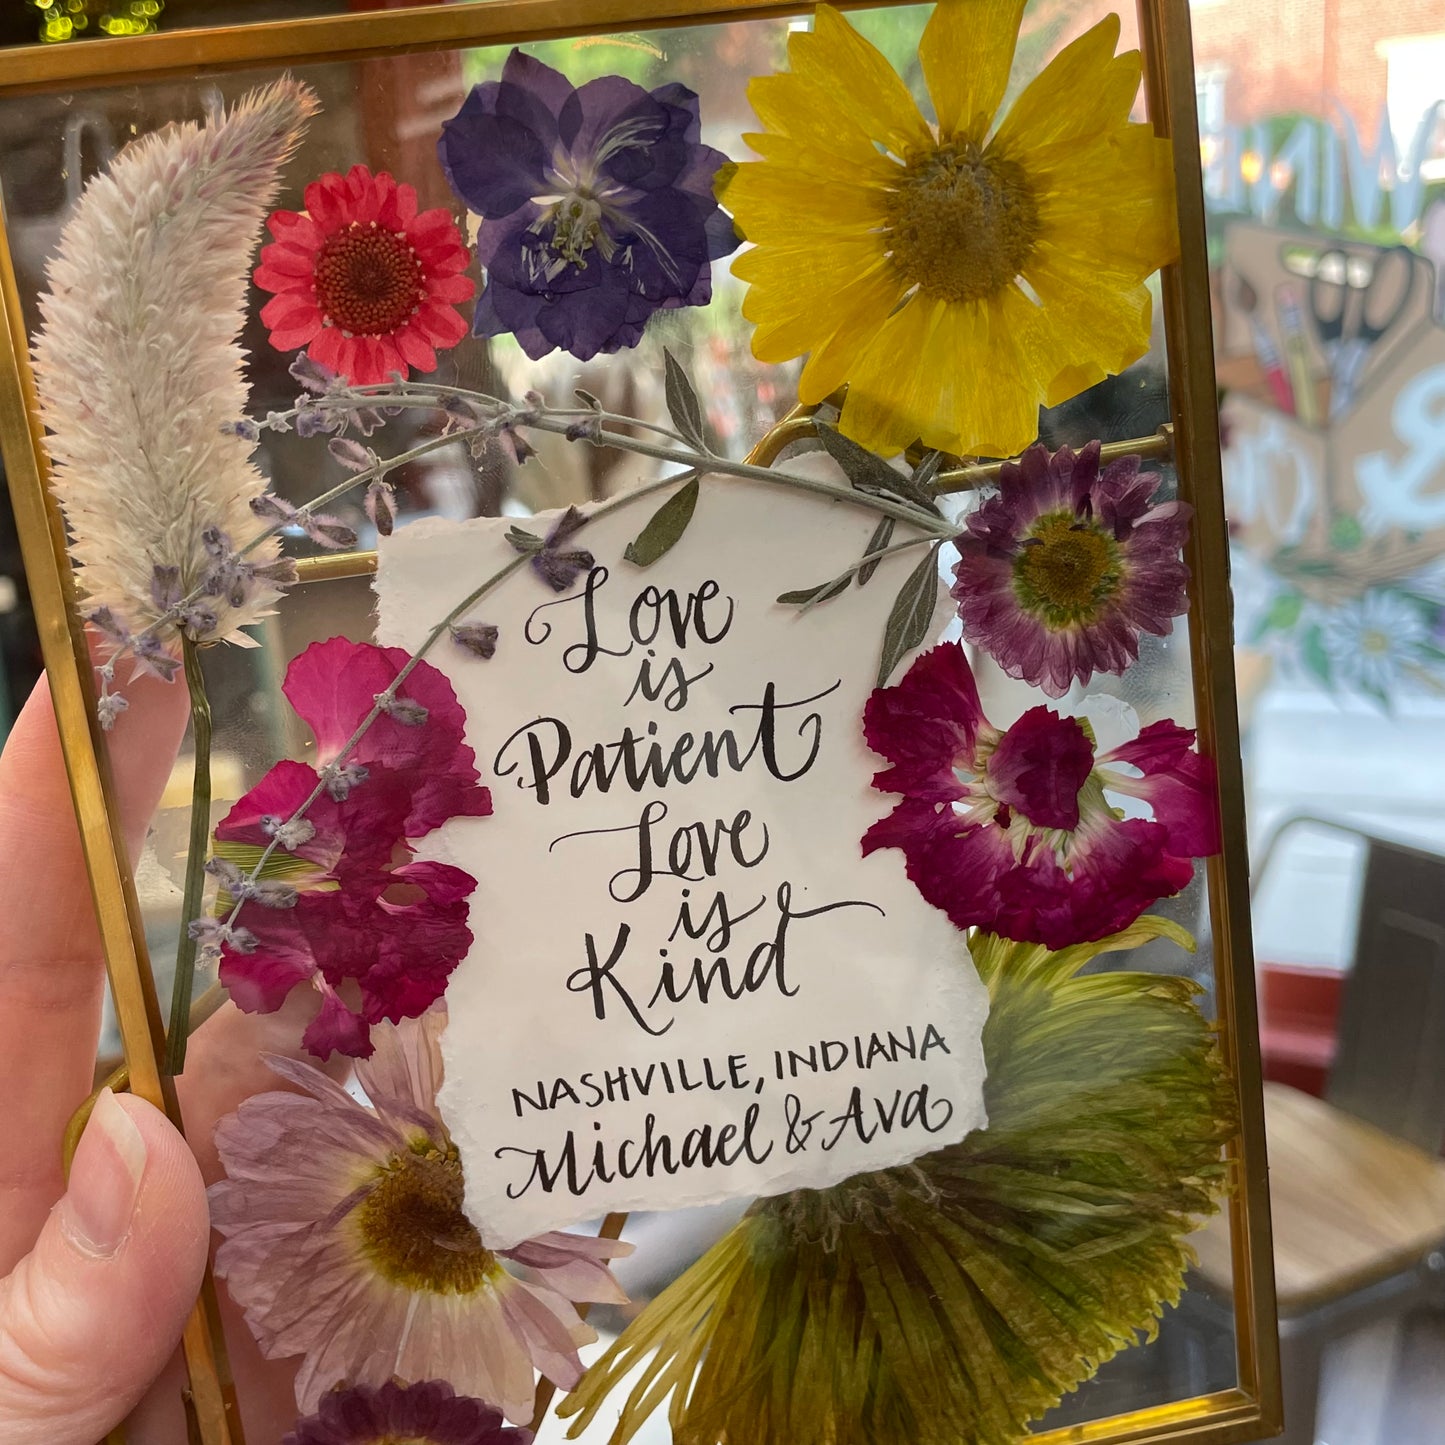 Love
is
Patient
Love
is
Kind
NASHVILLE, INDIANA
Michael & Ava
&